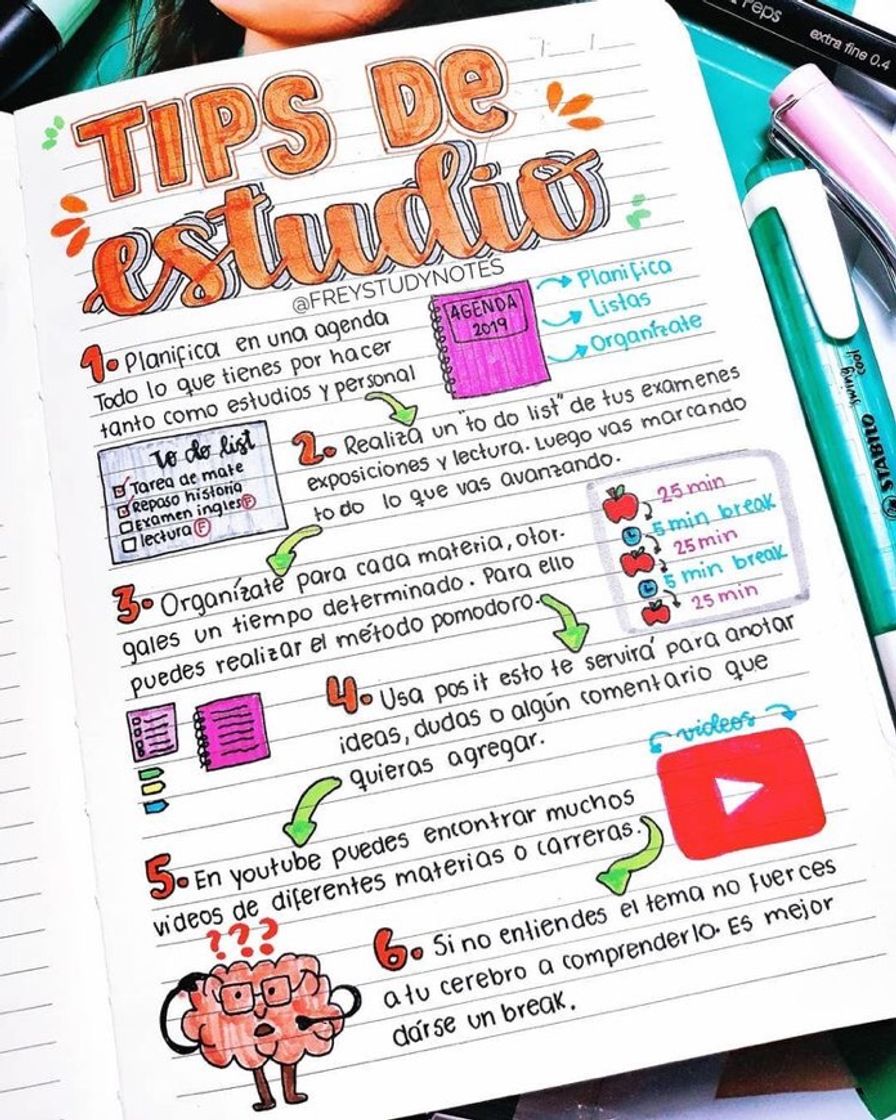 peps
extra fine 0.4
TIPS De
estudio
@FREYSTUDYNOTES
AGENDA
2019
Planifica
Listas
Organízate
1. Planifica en una agenda
Todo lo que tienes por hacer
tanto como estudios y personal
To do list
Tarea de mate
Repaso historia
Examen ingles F
lectura F
2. Realiza un "to do list" de tus examenes
exposiciones y lectura. Luego vas marcando
todo lo que vas avanzando.
25 min
5 min break
25 min
5 min break
25 min
3. Organízate para cada materia, otor-
gales un tiempo determinado. Para ello
puedes realizar el método pomodoro.
4. Usa posit esto te servirá para anotar
ideas, dudas o algún comentario que
quieras agregar.
videos
5. En youtube puedes encontrar muchos
videos de diferentes materias o carreras.
???
6. Si no entiendes el tema no fuerces
a tu cerebro a comprenderlo. Es mejor
darse un break.
swing cool
STABILO